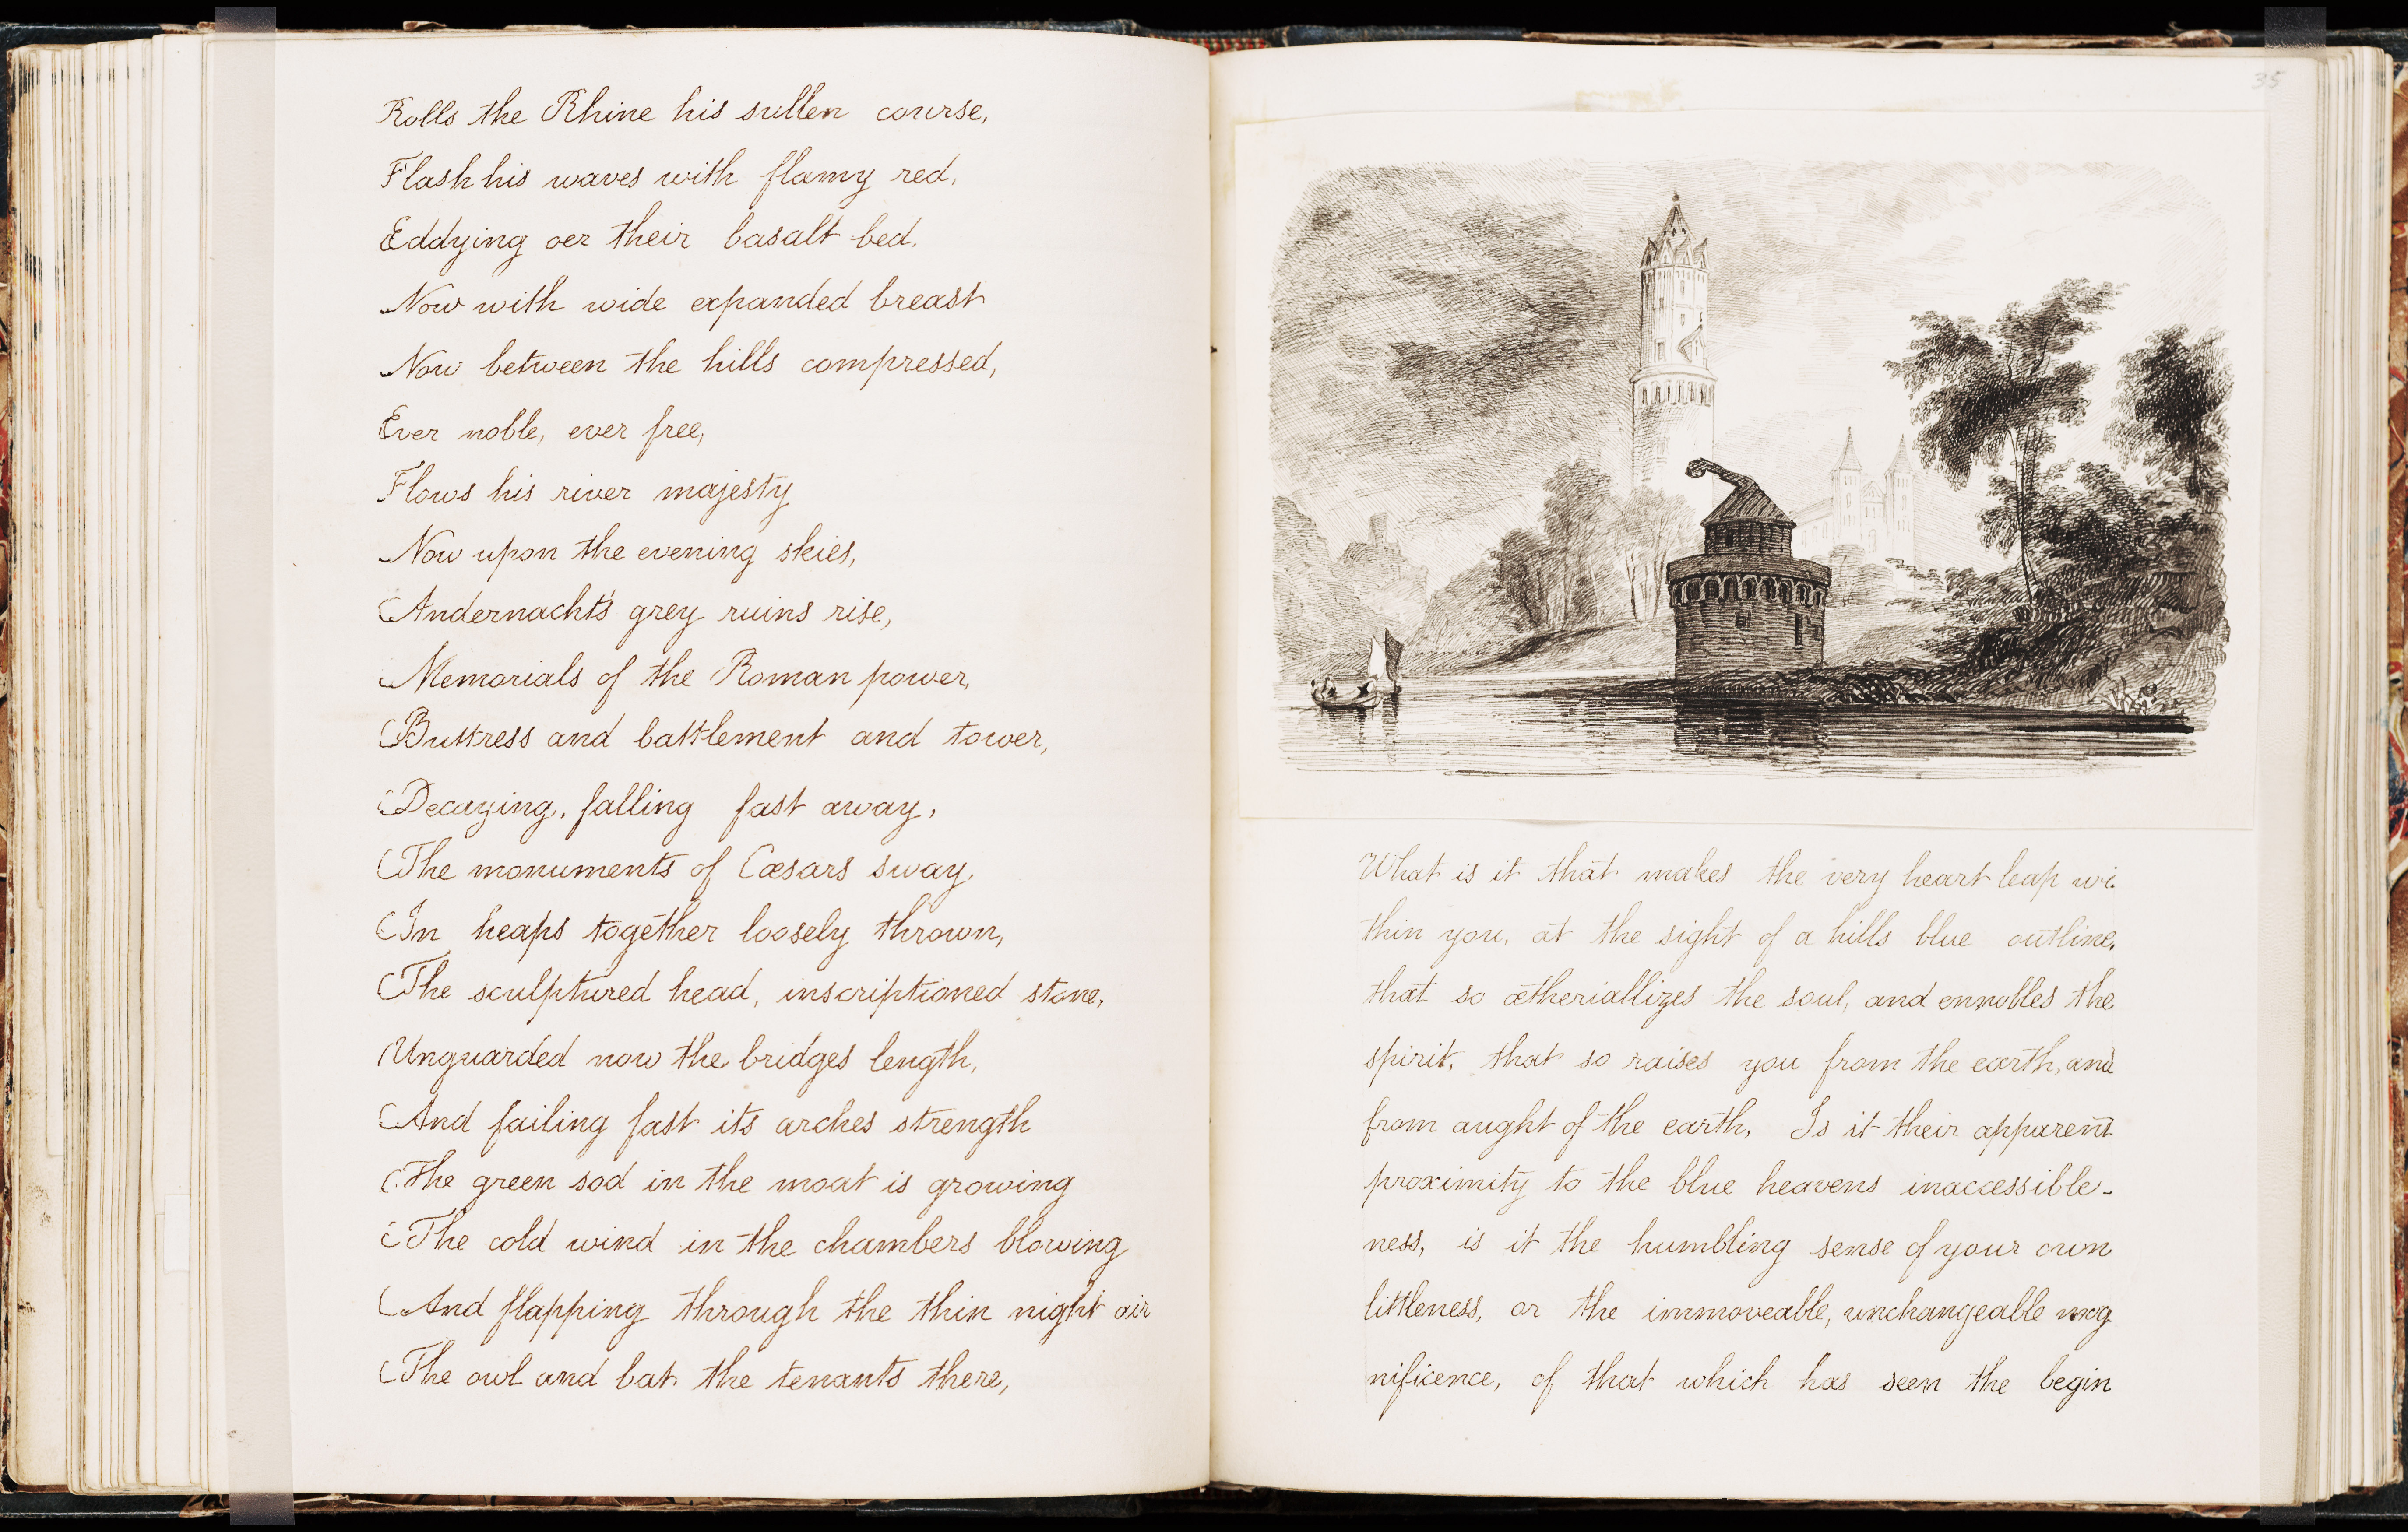 Rolls the Rhine his sullen course,
Flash his waves with flamy red,
Eddying oer their basalt bed.
Now with wide expanded breast
Now between the hills compressed,
Ever noble, ever free,
Flows his river majesty
Now upon the evening skies,
Andernacht's grey ruins rise,
Memorials of the Roman power,
Buttress and battlement and tower,
Decaying, falling fast away,
The monuments of Cæsars sway,
In heaps together loosely thrown,
The sculptured head, inscriptioned stone,
Unguarded now the bridges length,
And failing fast its arches strength
The green sod in the moat is growing
The cold wind in the chambers blowing
And flapping through the thin night air
The owl and bat the tenants there,
35
What is it that makes the very heart leap wi
thin you, at the sight of a hills blue outline,
that so ætheriallizes the soul, and ennobles the
spirit, that so raises you from the earth, and
from aught of the earth, Is it their apparent
proximity to the blue heavens inaccessible-
ness, is it the humbling sense of your own
littleness, or the immoveable, unchangeable mag
nificence, of that which has seen the begin